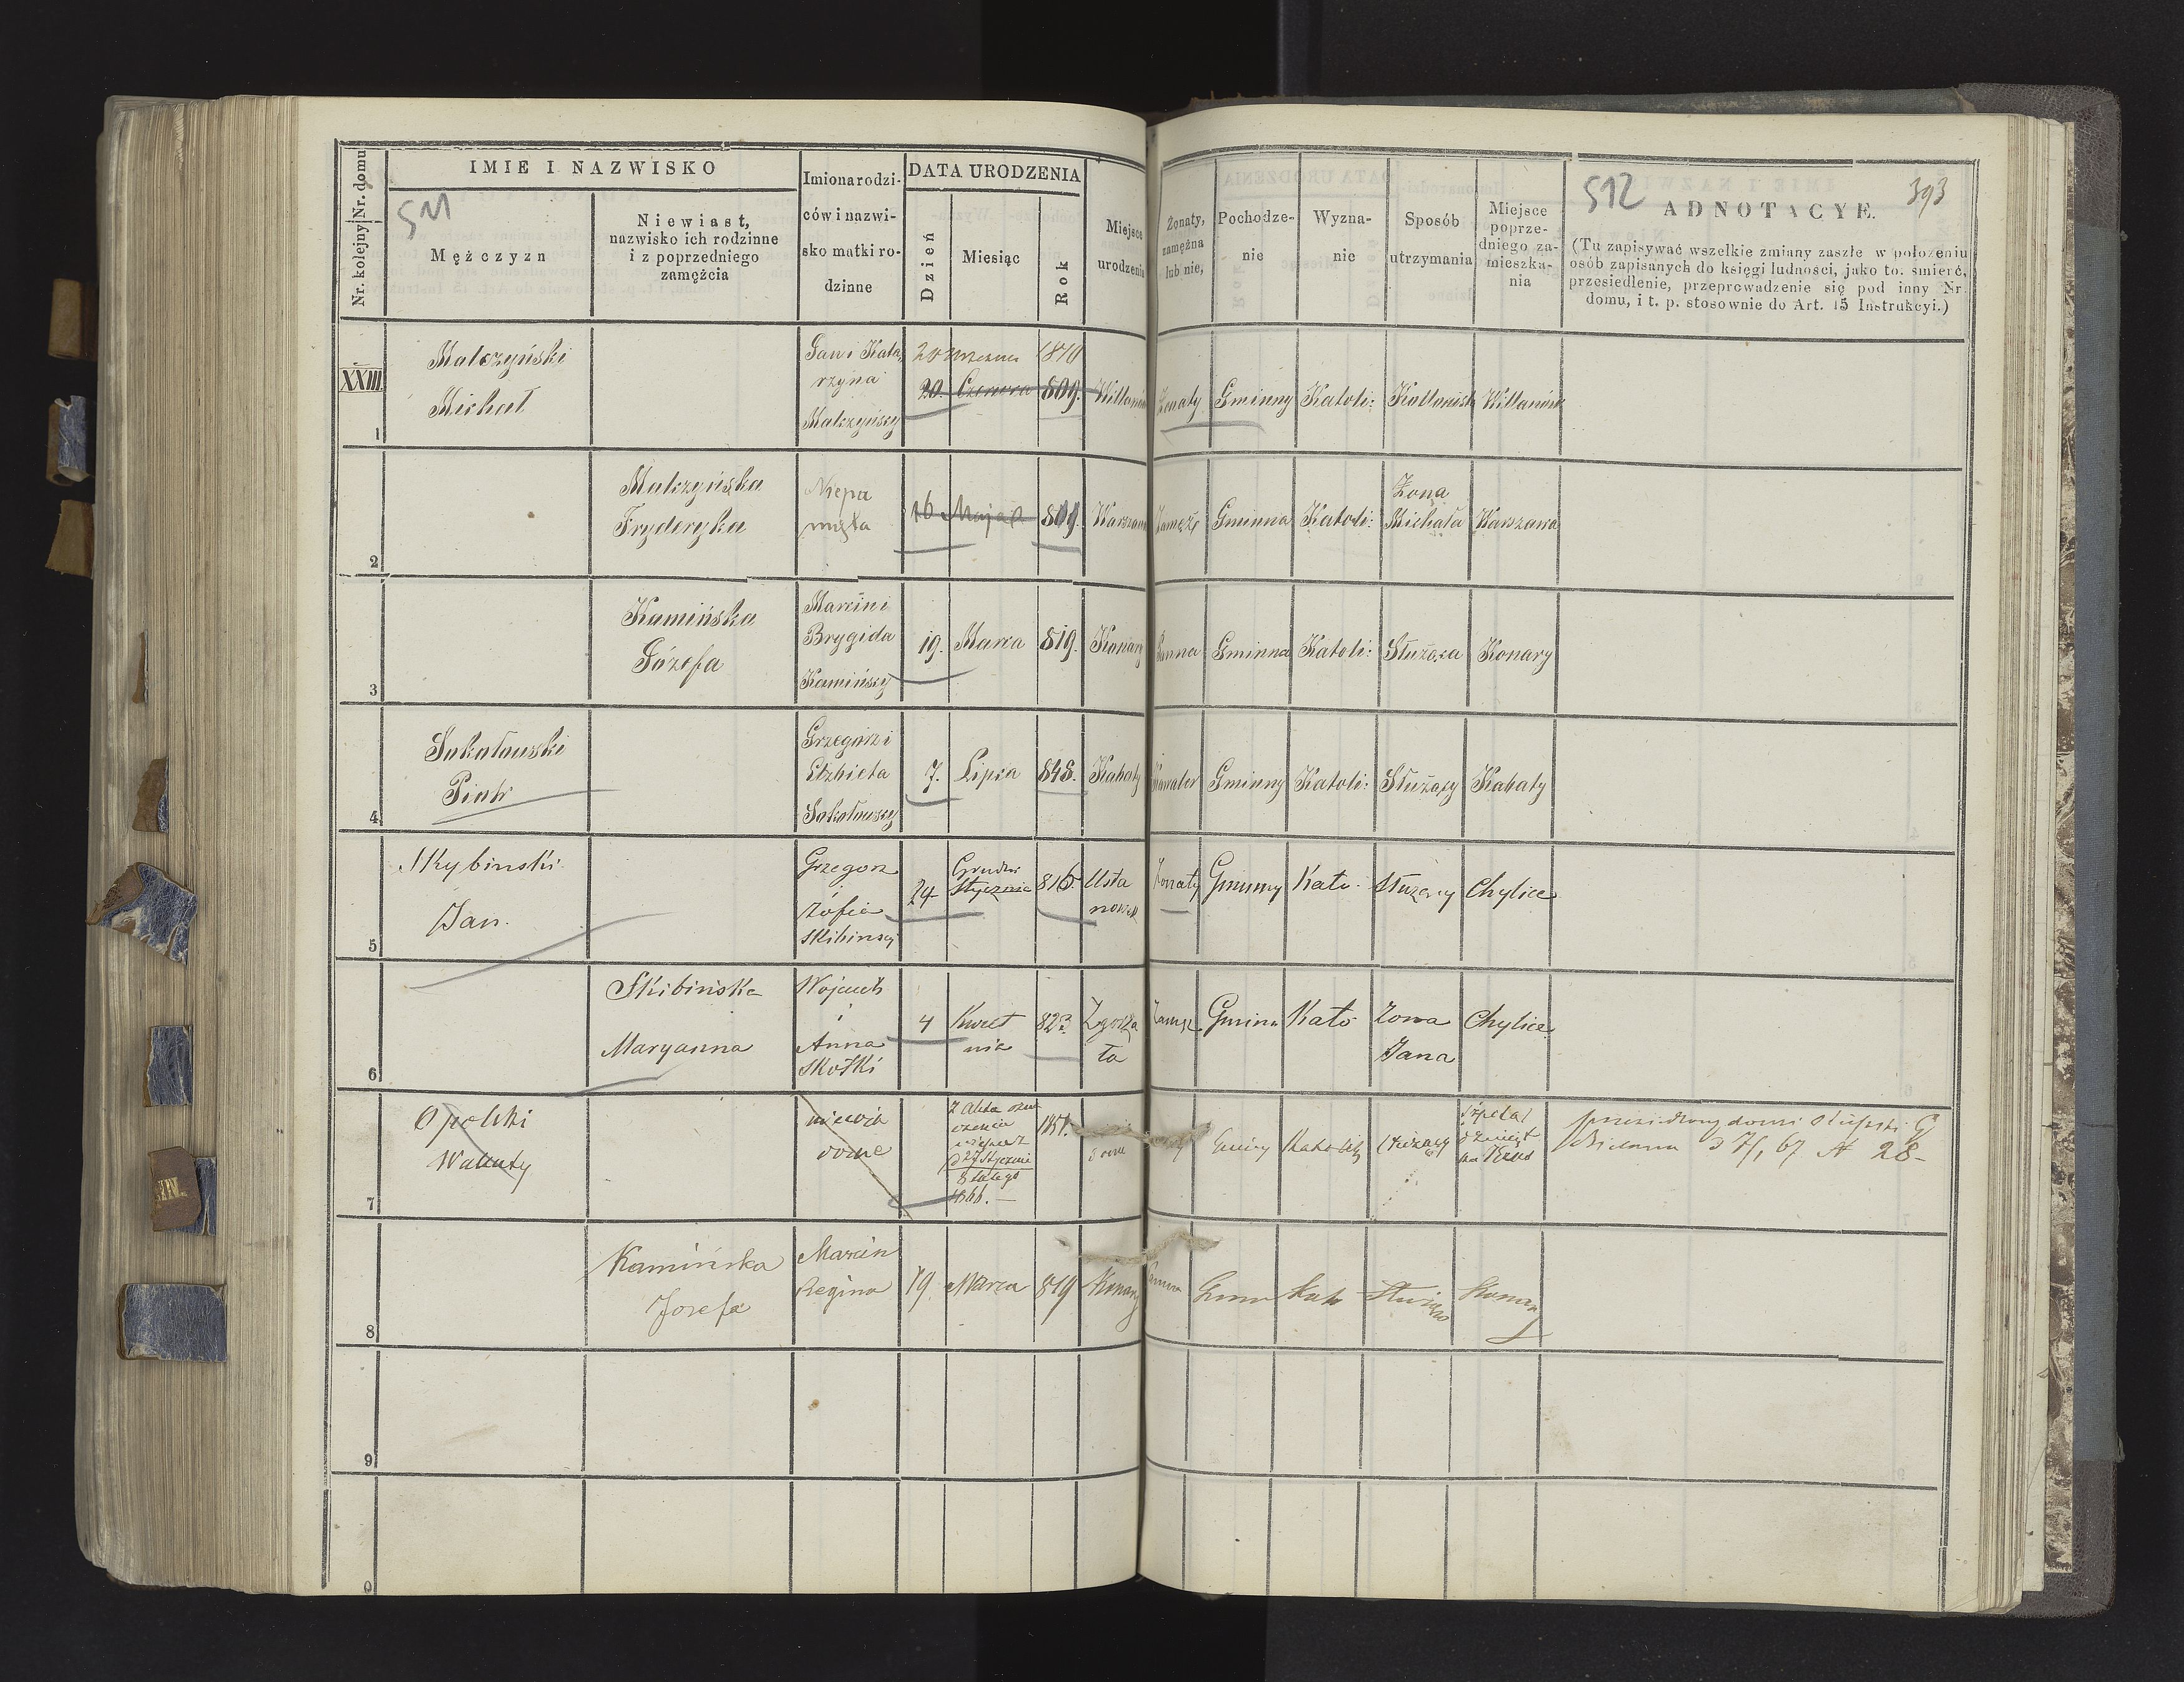 Nr. domu
Nr. kolejny
IMIE I NAZWISKO
511
Mężczyzn
Niewiast,
nazwisko ich rodzinne
i z poprzedniego
zamęźcia
Imiona rodzi-
ców i nazwi-
sko matki ro-
dzinne
DATA URODZENIA
Dzień
Miesiąc
Rok
Miejsce
urodzenia
Żonaty,
zamężna
lub nie,
Pochodze-
nie
Wyzna-
nie
Sposób
utrzymania
Miejsce
poprze-
dniego za-
mieszka-
nia
512
393
ADNOTACYE.
(Tu zapisywać wszelkie zmiany zaszłe w położeniu
osób zapisanych do księgi ludności, jako to. śmierć,
przesiedlenie, przeprowadzenie się pod inny Nr.
domu, i t. p. stosownie do Art. 15 Instrukcyi.)
XXIII
1
Malczyński
Michał
Jan i Kata
rzyna
Malczyńscy
20 1810
20. Czerwca 809.
Willanów
Żonaty
Gminny
Katoli:
Willanów
2
Malczyńska
Fryderyka
Niepa
mięta
16 Maja 809.
Warszawa
Zamęż
Gminna
Katoli:
Żona
Michała
Warszawa
3
Kamińska
Józefa
Marcin i
Brygida
Kamińscy
19. Marca 819.
Konary
Panna
Gminna
Katoli:
Służąca
Konary
4
Sokołowski
Piotr
Grzegorz i
Elżbieta
Sokołowscy
7. Lipca 848.
Kabaty
Kawaler
Gminny
Katoli:
Służący
Kabaty
5
Skybinski
Jan.
Grzegorz
i
Zofia
Skibinscy
24
Grudni
Stycznia
816.
Usta
nowek
Żonaty
Gminny
Kato.
Służący
Chylice
6
Skibińska
Maryanna
Wojciech
i
Anna
Skołki
4
Kwiet
nia
823
Zgorza
ła
Zamęż.
Gmina
Kato
Żona
Jana
Chylice
7
Opolski
Walenty
niewia
dome
27 Stycznia
8 Lutego
1866. —
Gminy
Katolik
Służący
Szpital
Dzieciąt
ka Jezus
28-
8
Kamińska
Josefa
Marcin
Regina
19. Marca 819
Konary
Panna
Gmin
Kato
Służąca
Konary
9
0